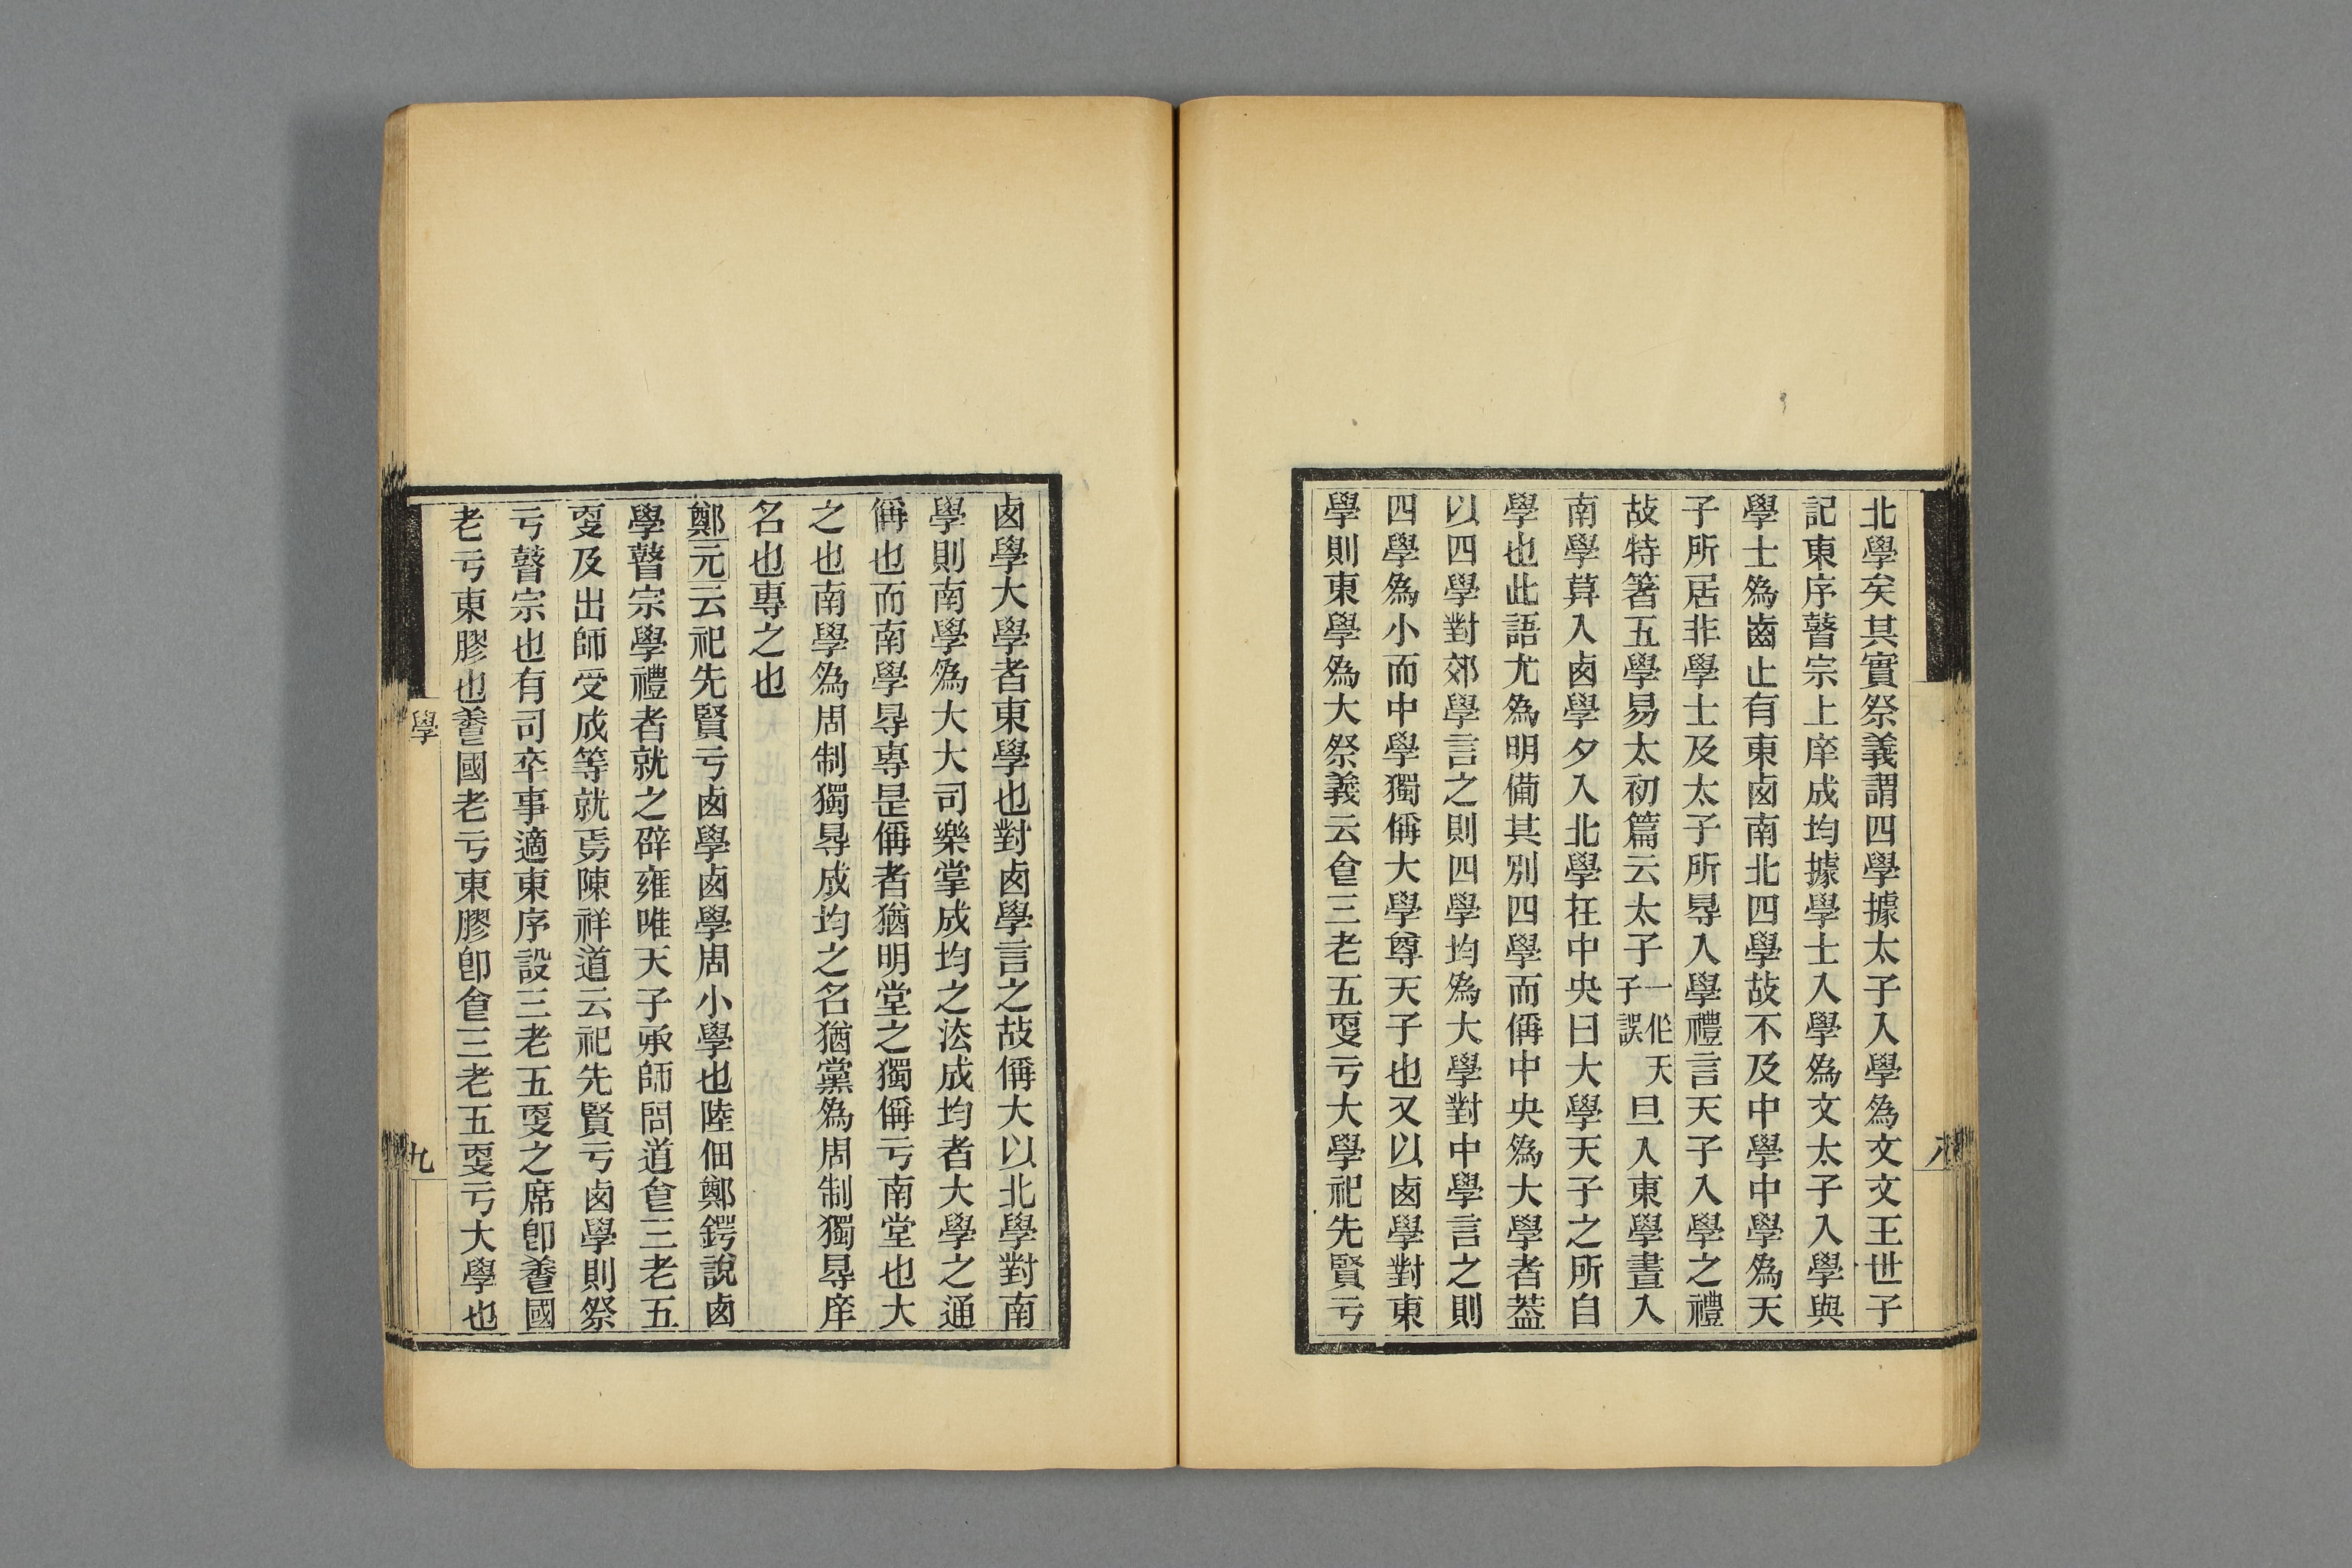 北學矣其實祭義謂四學據太子入學為文文王世子
記東序瞽宗上庠成均據學士入學為文太子入學與
學士為齒止有東鹵南北四學故不及中學中學為天
子所居非學士及太子所㝵入學禮言天子入學之禮
故特箸五學易太初篇云太子一作天子誤旦入東學晝入
南學莫入鹵學夕入北學在中央曰大學天子之所自
學也此語尤為明備其別四學而偁中央為大學者葢
以四學對郊學言之則四學均為大學對中學言之則
四學為小而中學獨偁大學尊天子也又以鹵學對東
學則東學為大祭義云食三老五㪅亏大學祀先賢亏
八
鹵學大學者東學也對鹵學言之故偁大以北學對南
學則南學為大大司樂掌成均之法成均者大學之通
偁也而南學㝵專是偁者猶明堂之獨偁亏南堂也大
之也南學為周制獨㝵成均之名猶黨為周制獨㝵庠
名也專之也
鄭元云祀先賢亏鹵學鹵學周小學也陸佃鄭鍔說鹵
學瞽宗學禮者就之辟雍唯天子承師問道食三老五
㪅及出師受成等就焉陳祥道云祀先賢亏鹵學則祭
亏瞽宗也有司卒事適東序設三老五㪅之席卽養國
老亏東膠也養國老亏東膠卽食三老五㪅亏大學也
學
九